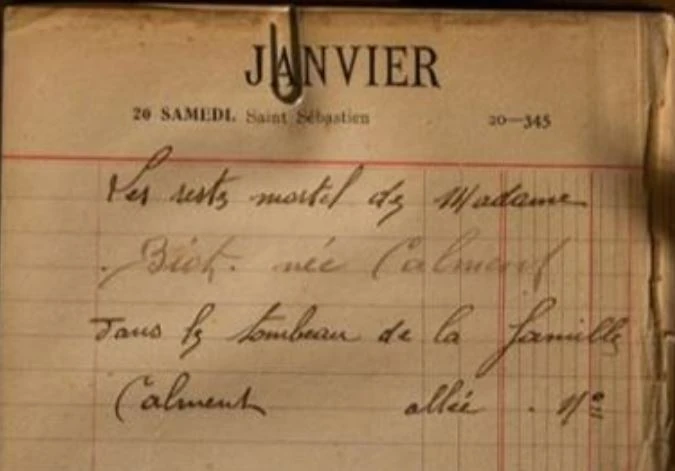 JANVIER
20 SAMEDI. Saint Sébastien 20—345
Les reste mortel de Madame
Biot. née Calment
Dans le tombeau de la famille
Calment allée . No